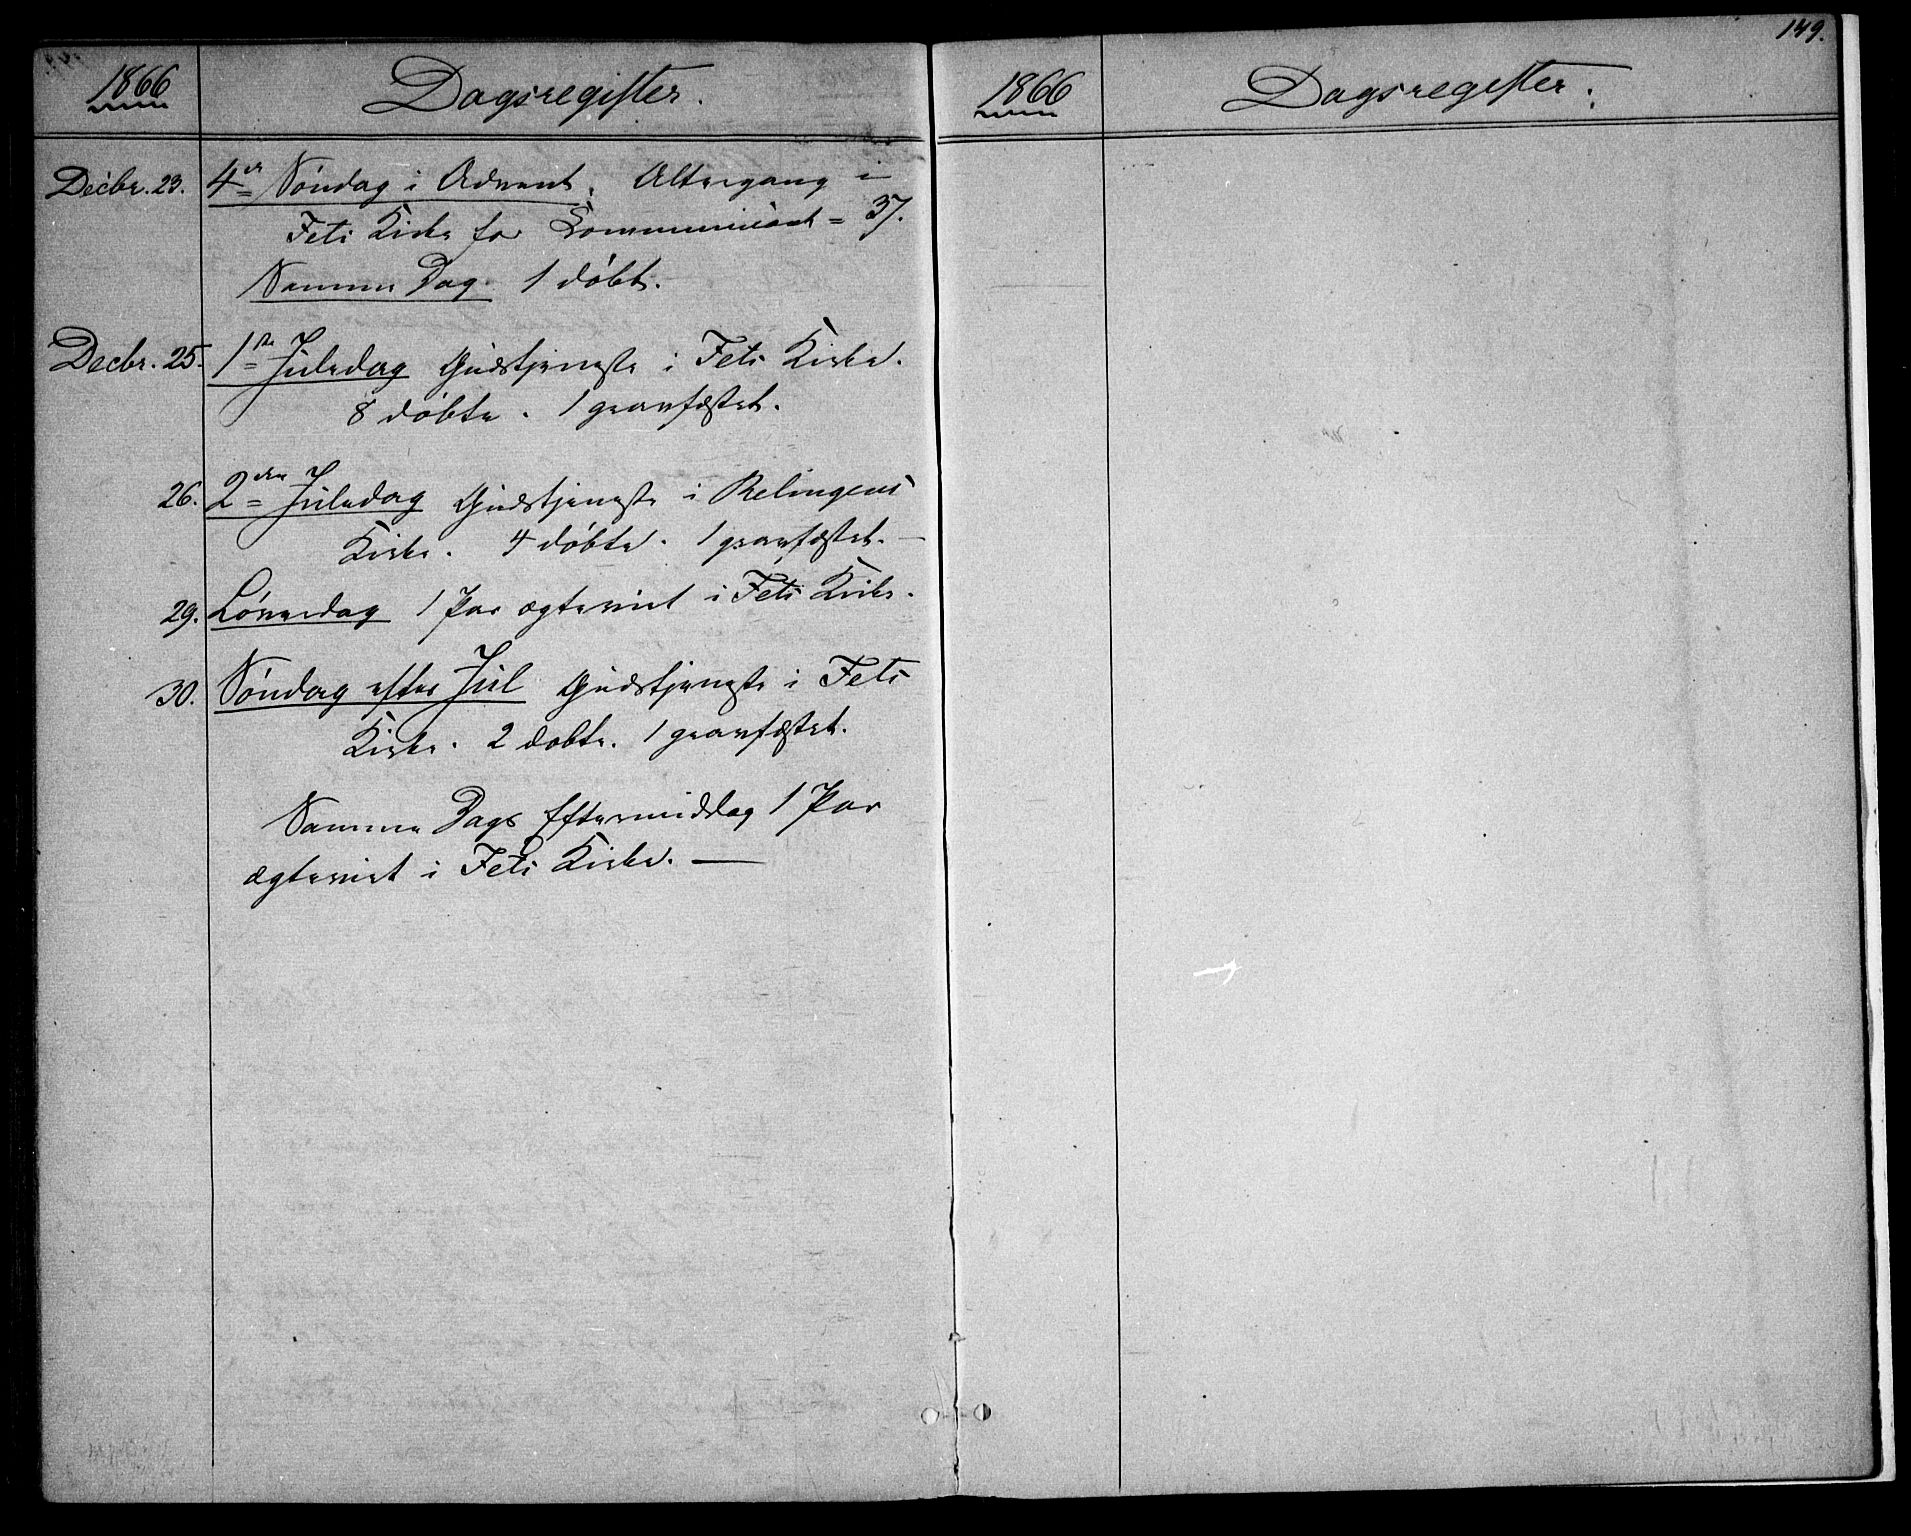 1866 Dagsregister.
Decbr. 23. 4de Søndag i Advent. Altergang i
Fets Kirke for Communicant = 37.
Samme Dag 1 døbt.
Decbr. 25. 1ste Juledag Gudstjeneste i Fets Kirke.
8 døbte. 1 gravfæstet.
26. 2den Juledag Gudstjeneste i Relingens
Kirke. 4 døbte. 1 gravfæstet. —
29. Løverdag 1 Par ægteviet i Fets Kirke.
30. Søndag efter Jul Gudstjeneste i Fets
Kirke. 2 døbte. 1 gravfæstet.
Samme Dags Eftermiddag 1 Par
ægteviet i Fets Kirke. —
149.
1866 Dagsregister.